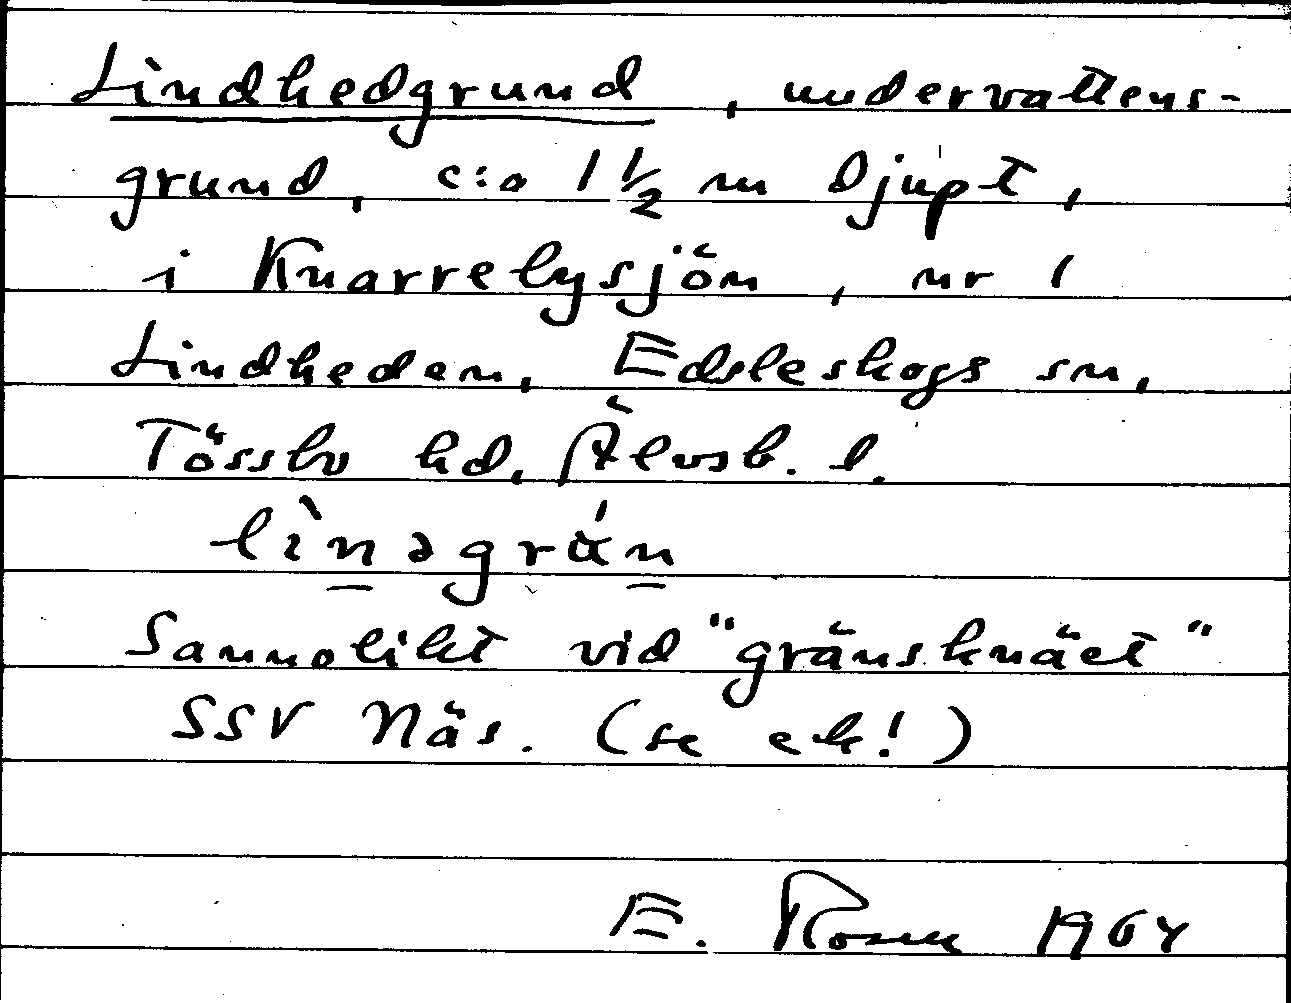 Lindhedgrund, undervattens-
grund, c:a 1 1/2 m djupt,
i Knarrebysjön, nr 1
Lindheden, Edsleskogs sn,
Tössbo hd, Älvsb. l.
lìnəgrún
Sannolikt vid "gränsknäet"
SSV Näs. (se ek!)
E. Rosen 1964